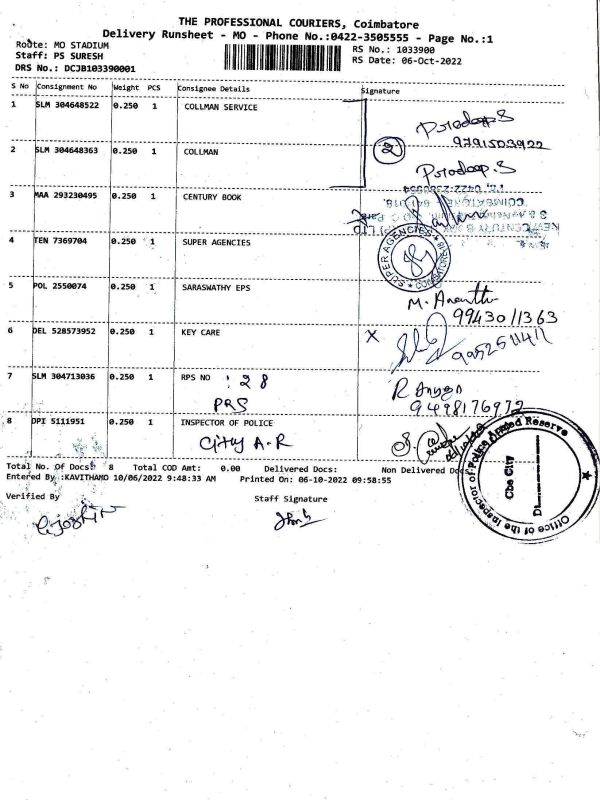 THE PROFESSIONAL COURIERS, Coimbatore
Delivery Runsheet - MO - Phone No.:0422-3505555 - Page No.:1
Route: MO STADIUM
Staff: PS SURESH
DRS No.: DCJB103390001
RS No.: 1033900
RS Date: 06-Oct-2022
S No Consignment No Weight PCS Consignee Details Signature
1 SLM 304648522 0.250 1 COLLMAN SERVICE
Pradeep.S
9791503922
2 SLM 304648363 0.250 1 COLLMAN
2
Pradeep.S
3 MAA 293230495 0.250 1 CENTURY BOOK
4 TEN 7369704 0.250 1 SUPER AGENCIES
SUPER AGENCIES
5 POL 2550074 0.250 1 SARASWATHY EPS
M. Ananthi
99430 11363
6 DEL 528573952 0.250 1 KEY CARE
X
9952511411
7 SLM 304713036 0.250 1 RPS NO : 28
PRS
9498176972
8 DPI 5111951 0.250 1 INSPECTOR OF POLICE
City A.R
Office of the Inspector of Police Armed Reserve
Cbe City
Dt.
Total No. Of Docs: 8 Total COD Amt: 0.00 Delivered Docs: Non Delivered Docs
Entered By :KAVITHAMO 10/06/2022 9:48:33 AM Printed On: 06-10-2022 09:58:55
Verified By Staff Signature